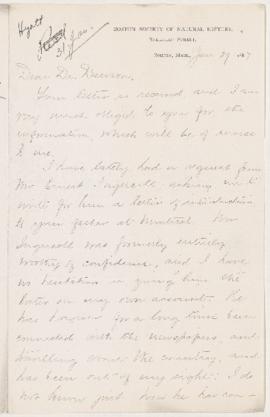 Hyatt
31 Jan.
BOSTON SOCIETY OF NATURAL HISTORY,
BERKELEY STREET,
BOSTON, MASS., Jan 29 1887
Dear Dr. Dawson,
Your letter is received and I am
very much obliged to you for the
information, which will be of service
to me.
I have lately had a request from
Mr Ernest Ingersoll asking me to
write for him a letter of introduction
to your factor at Montreal. Mr
Ingersoll was formerly entirely
worthy of confidence, and I have
no hesitation in giving him the
letter on my own account. He
has however for a long time been
connected with the newspapers, and
travelling over the country, and
has been out of my sight; I do
not know just how he has con-